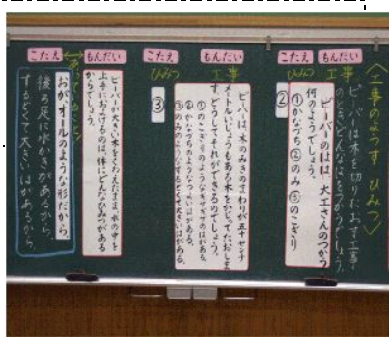 〈工事のようす ひみつ〉
もんだい
工事
ビーバーは木を切りたおす工事の
ときどんなはをつかうでしょう。
こたえ
ひみつ
ビーバーのはは、大工さんのつかう
何のようでしょう。
①かなづち ②のみ ③のこぎり
②
もんだい
工事
ビーバーは、木のみきのまわりが五十センチ
メートルいじょうもある木をかじってたおしま
す。どうしてそれができるのでしょう。
①のこぎりのようなギザギザのはがある。
②かなづちのようなつよいはがある。
③のみのようなするどくて大きいはがある。
こたえ
ひみつ
③
もんだい
ビーバーが大きい木をくわえたまま、水の中を
上手におよげるのは、体にどんなひみつがある
からでしょう。
こたえ
おが、オールのような形だから。
後ろ足に水かきがあるから。
するどくて大きいはがあるから。